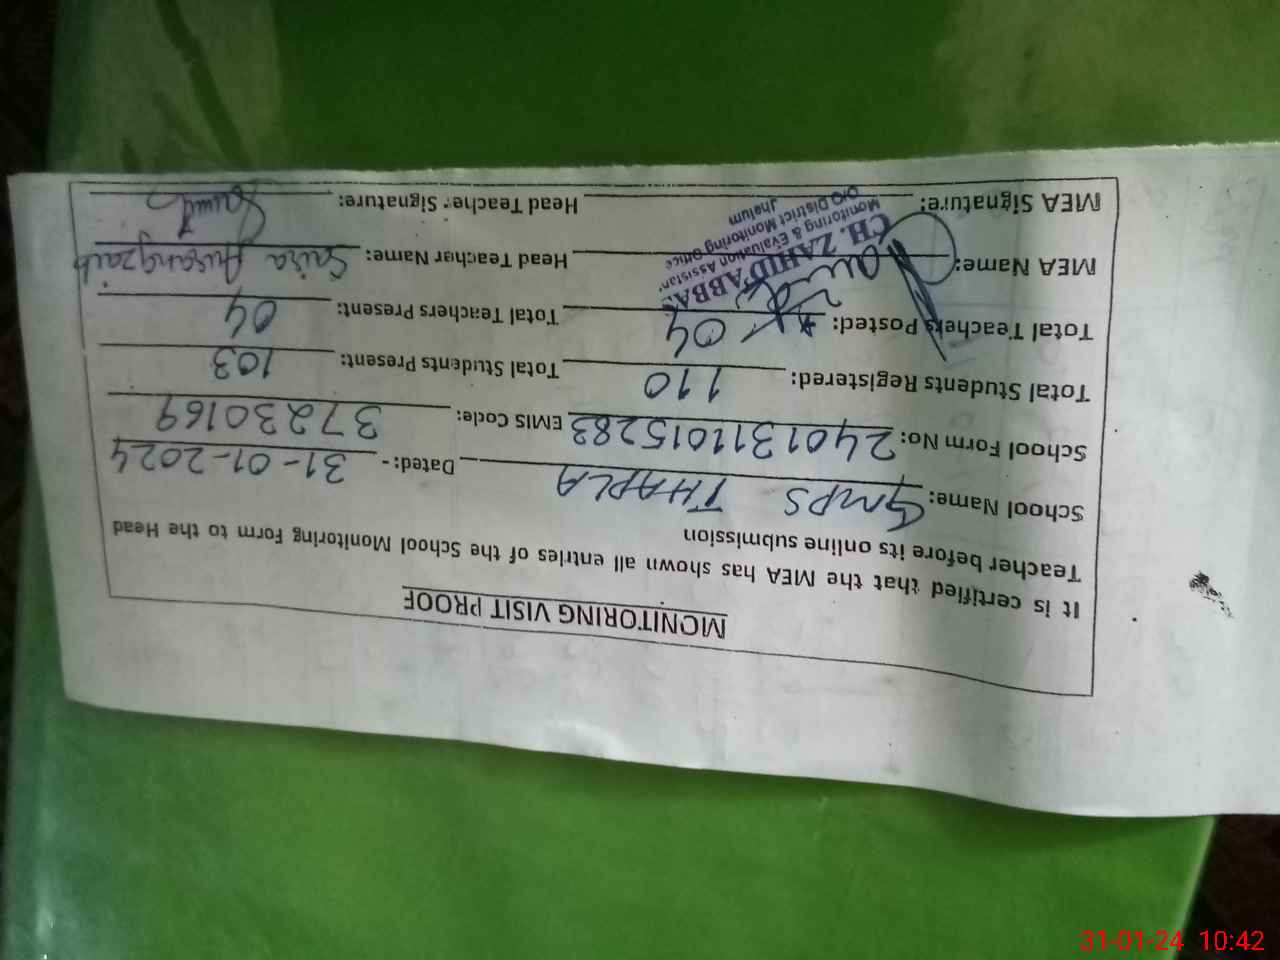 MONITORING VISIT PROOF
It is certified that the MEA has shown all entries of the School Monitoring Form to the Head
Teacher before its online submission
School Name: GMPS THAPLA Dated:- 31-01-2024
School Form No: 2401311015283 EMIS Code: 37230169
Total Students Registered: 110 Total Students Present: 103
Total Teachers Posted: 04 Total Teachers Present: 04
MEA Name: Head Teacher Name: Saira Aurangzaib
MEA Signature: Head Teacher Signature:
CH. ZAHID ABBAS
Monitoring & Evaluation Assistant
O/O District Monitoring Office
Jhelum
31-01-24 10:42